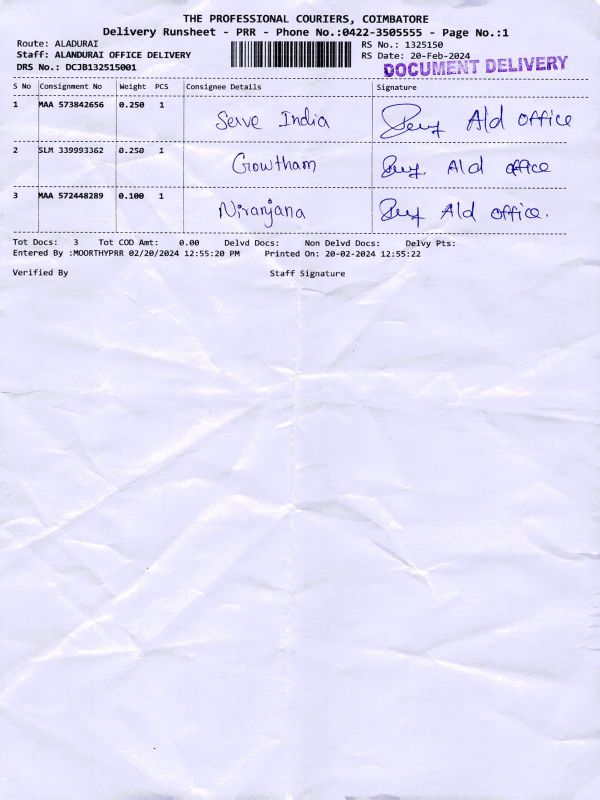 THE PROFESSIONAL COURIERS, COIMBATORE
Delivery Runsheet - PRR - Phone No.:0422-3505555 - Page No.:1
Route: ALADURAI RS No.: 1325150
Staff: ALANDURAI OFFICE DELIVERY RS Date: 20-Feb-2024
DRS No.: DCJB132515001 DOCUMENT DELIVERY
S No Consignment No Weight PCS Consignee Details Signature
1 MAA 573842656 0.250 1 Serve India Ald office
2 SLM 339993362 0.250 1 Gowtham Ald office
3 MAA 572448289 0.100 1 Niranjana Ald office.
Tot Docs: 3 Tot COD Amt: 0.00 Delvd Docs: Non Delvd Docs: Delvy Pts:
Entered By :MOORTHYPRR 02/20/2024 12:55:20 PM Printed On: 20-02-2024 12:55:22
Verified By Staff Signature